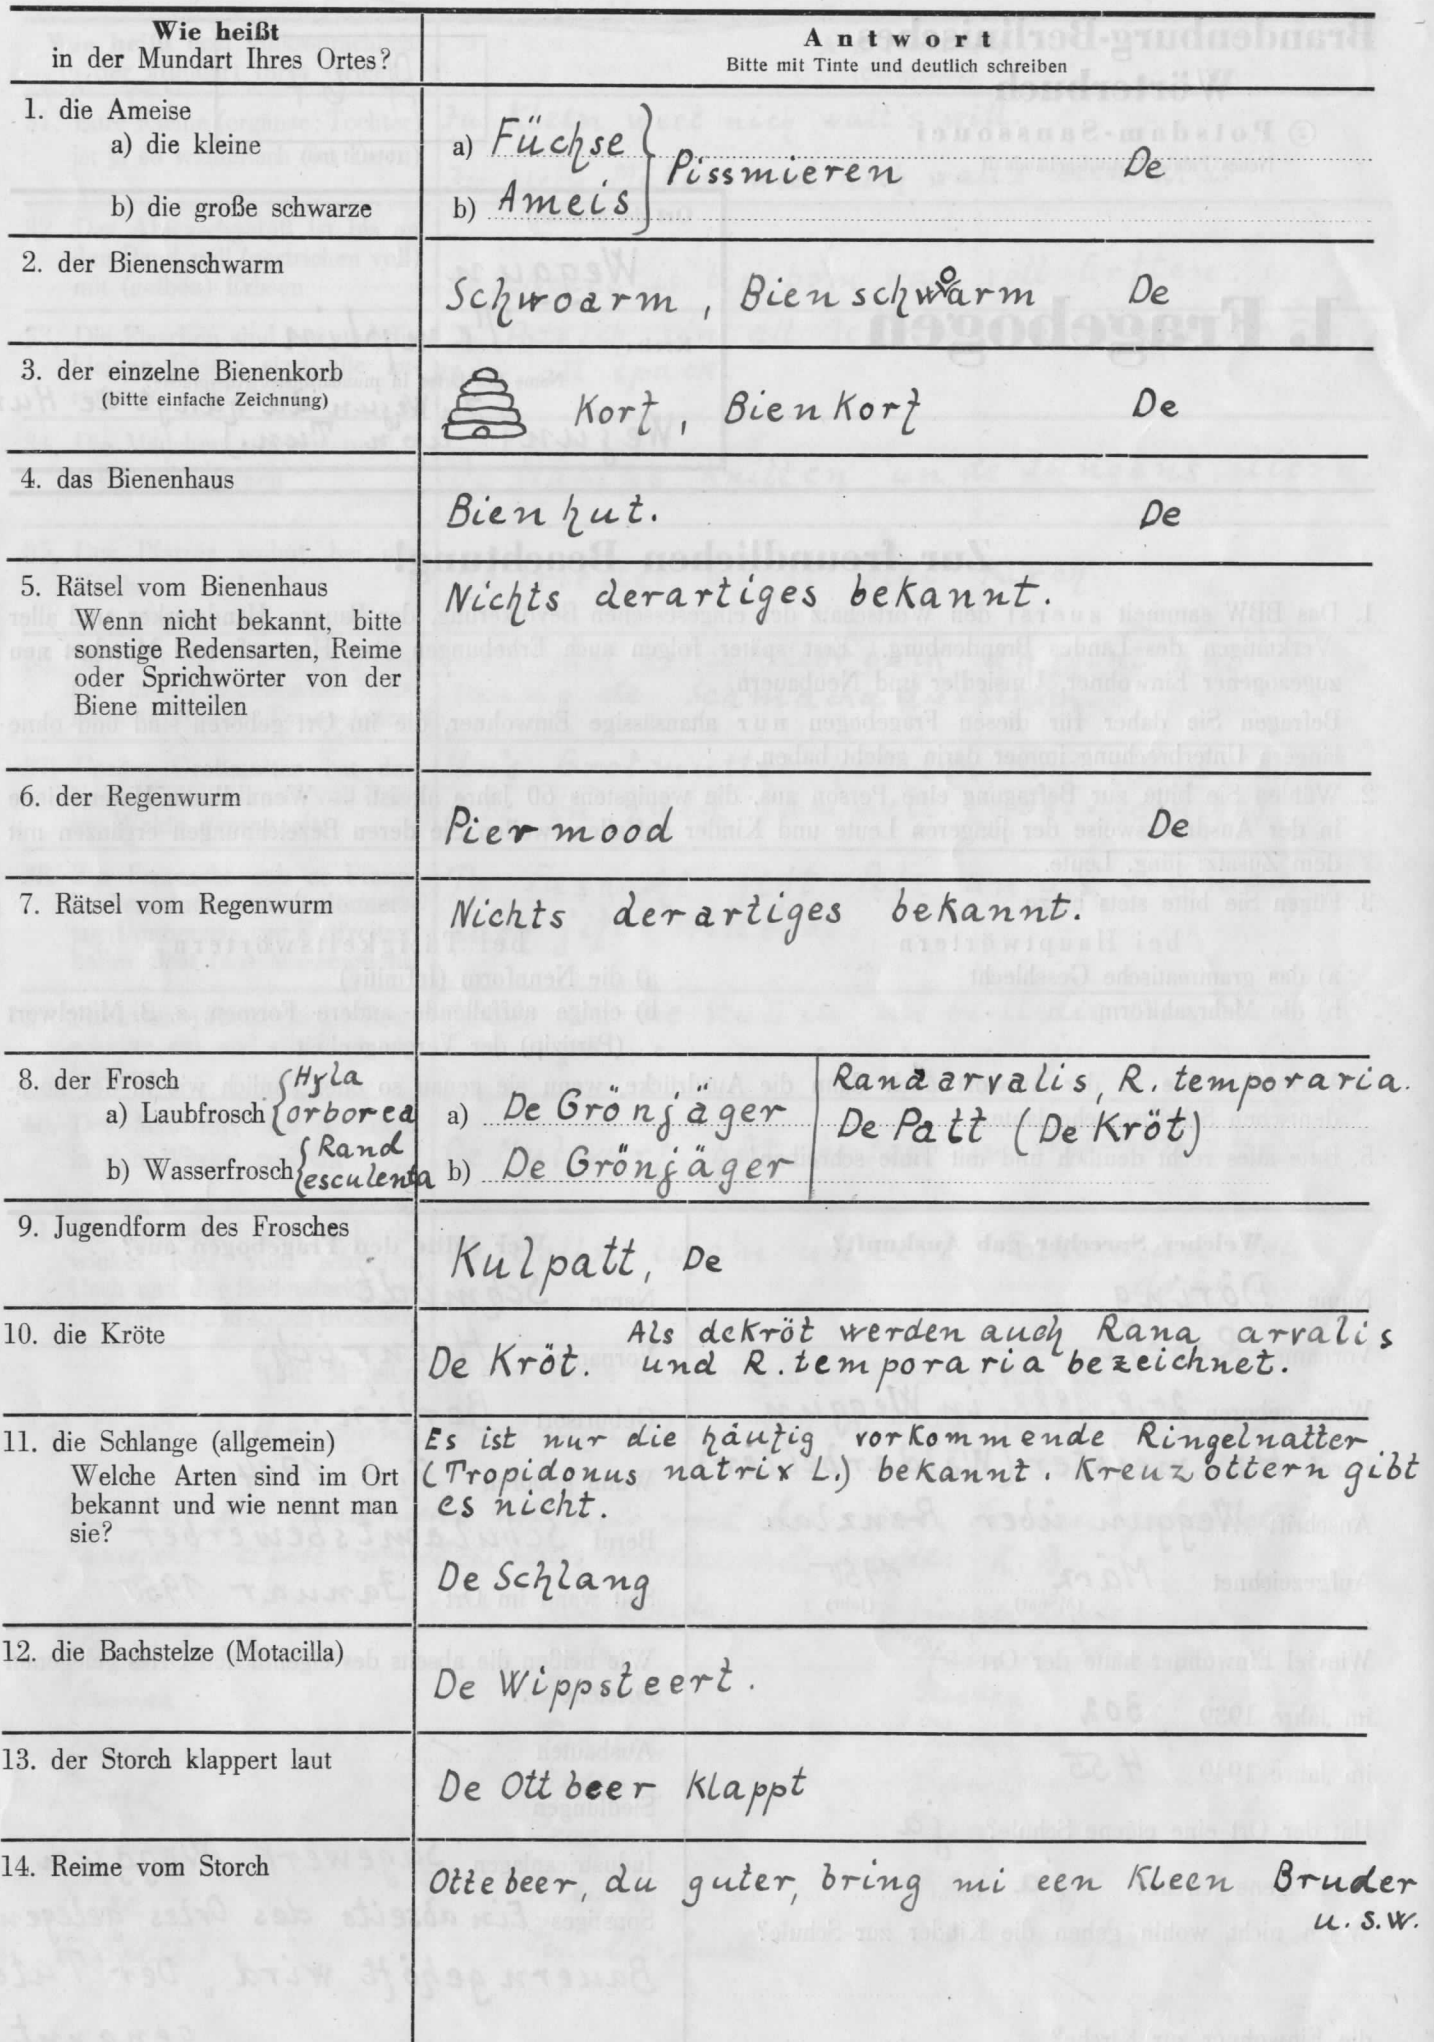 Wie heißt
in der Mundart Ihres Ortes?
Antwort
Bitte mit Tinte und deutlich schreiben
1. die Ameise
a) die kleine
b) die große schwarze
a) Füchse
b) Ameis
Pissmieren De
2. der Bienenschwarm
Schwoarm, Bienschwårm De
3. der einzelne Bienenkorb
(bitte einfache Zeichnung)
Korf, Bienkorf De
4. das Bienenhaus
Bienhut. De
5. Rätsel vom Bienenhaus
Wenn nicht bekannt, bitte
sonstige Redensarten, Reime
oder Sprichwörter von der
Biene mitteilen
Nichts derartiges bekannt.
6. der Regenwurm
Piermood De
7. Rätsel vom Regenwurm
Nichts derartiges bekannt.
8. der Frosch
a) Laubfrosch {Hyla
orborea
b) Wasserfrosch {Rand
esculenta
a) De Grönjäger
b) De Grönjäger
Rana arvalis, R. temporaria.
De Patt (De Kröt)
9. Jugendform des Frosches
Kulpatt, De
10. die Kröte
De Kröt. Als deKröt werden auch Rana arvalis
und R. temporaria bezeichnet.
11. die Schlange (allgemein)
Welche Arten sind im Ort
bekannt und wie nennt man
sie?
Es ist nur die häufig vorkommende Ringelnatter
(Tropidonus natrix L.) bekannt. Kreuzottern gibt
es nicht.
De Schlang
12. die Bachstelze (Motacilla)
De Wippsteert.
13. der Storch klappert laut
De Ottbeer klappt
14. Reime vom Storch
Ottebeer, du guter, bring mi een kleen Bruder
u. s. w.